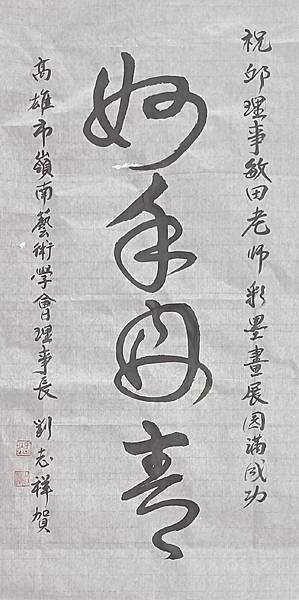 祝邱理事敏田老师彩墨畫展圆滿成功
妙手丹青
高雄市嶺南藝術學會理事長劉志祥賀